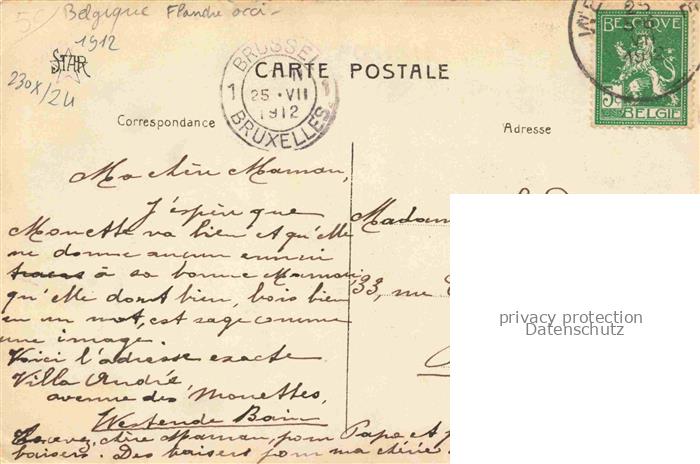 Belgique Flandre occi-
1912
STAR
230X/24
BRUSSEL
1 25 · VII 1
1912
BRUXELLES
CARTE POSTALE
BELGIQUE
5
BELGIË
Correspondance
Adresse
Ma chère Maman,
J'espère que
Monette va bien et qu'elle
ne donne aucun ennui
à sa bonne Maman,
qu'elle dort bien, bois bien
en un mot, est sage comme
une image.
Voici l'adresse exacte
Villa André,
avenue des Mouettes,
Westende Bain
Recevez, chère Maman, pour Papa et
baisers. Des baisers pour ma chérie.
Madam
33, rue
privacy protection
Datenschutz